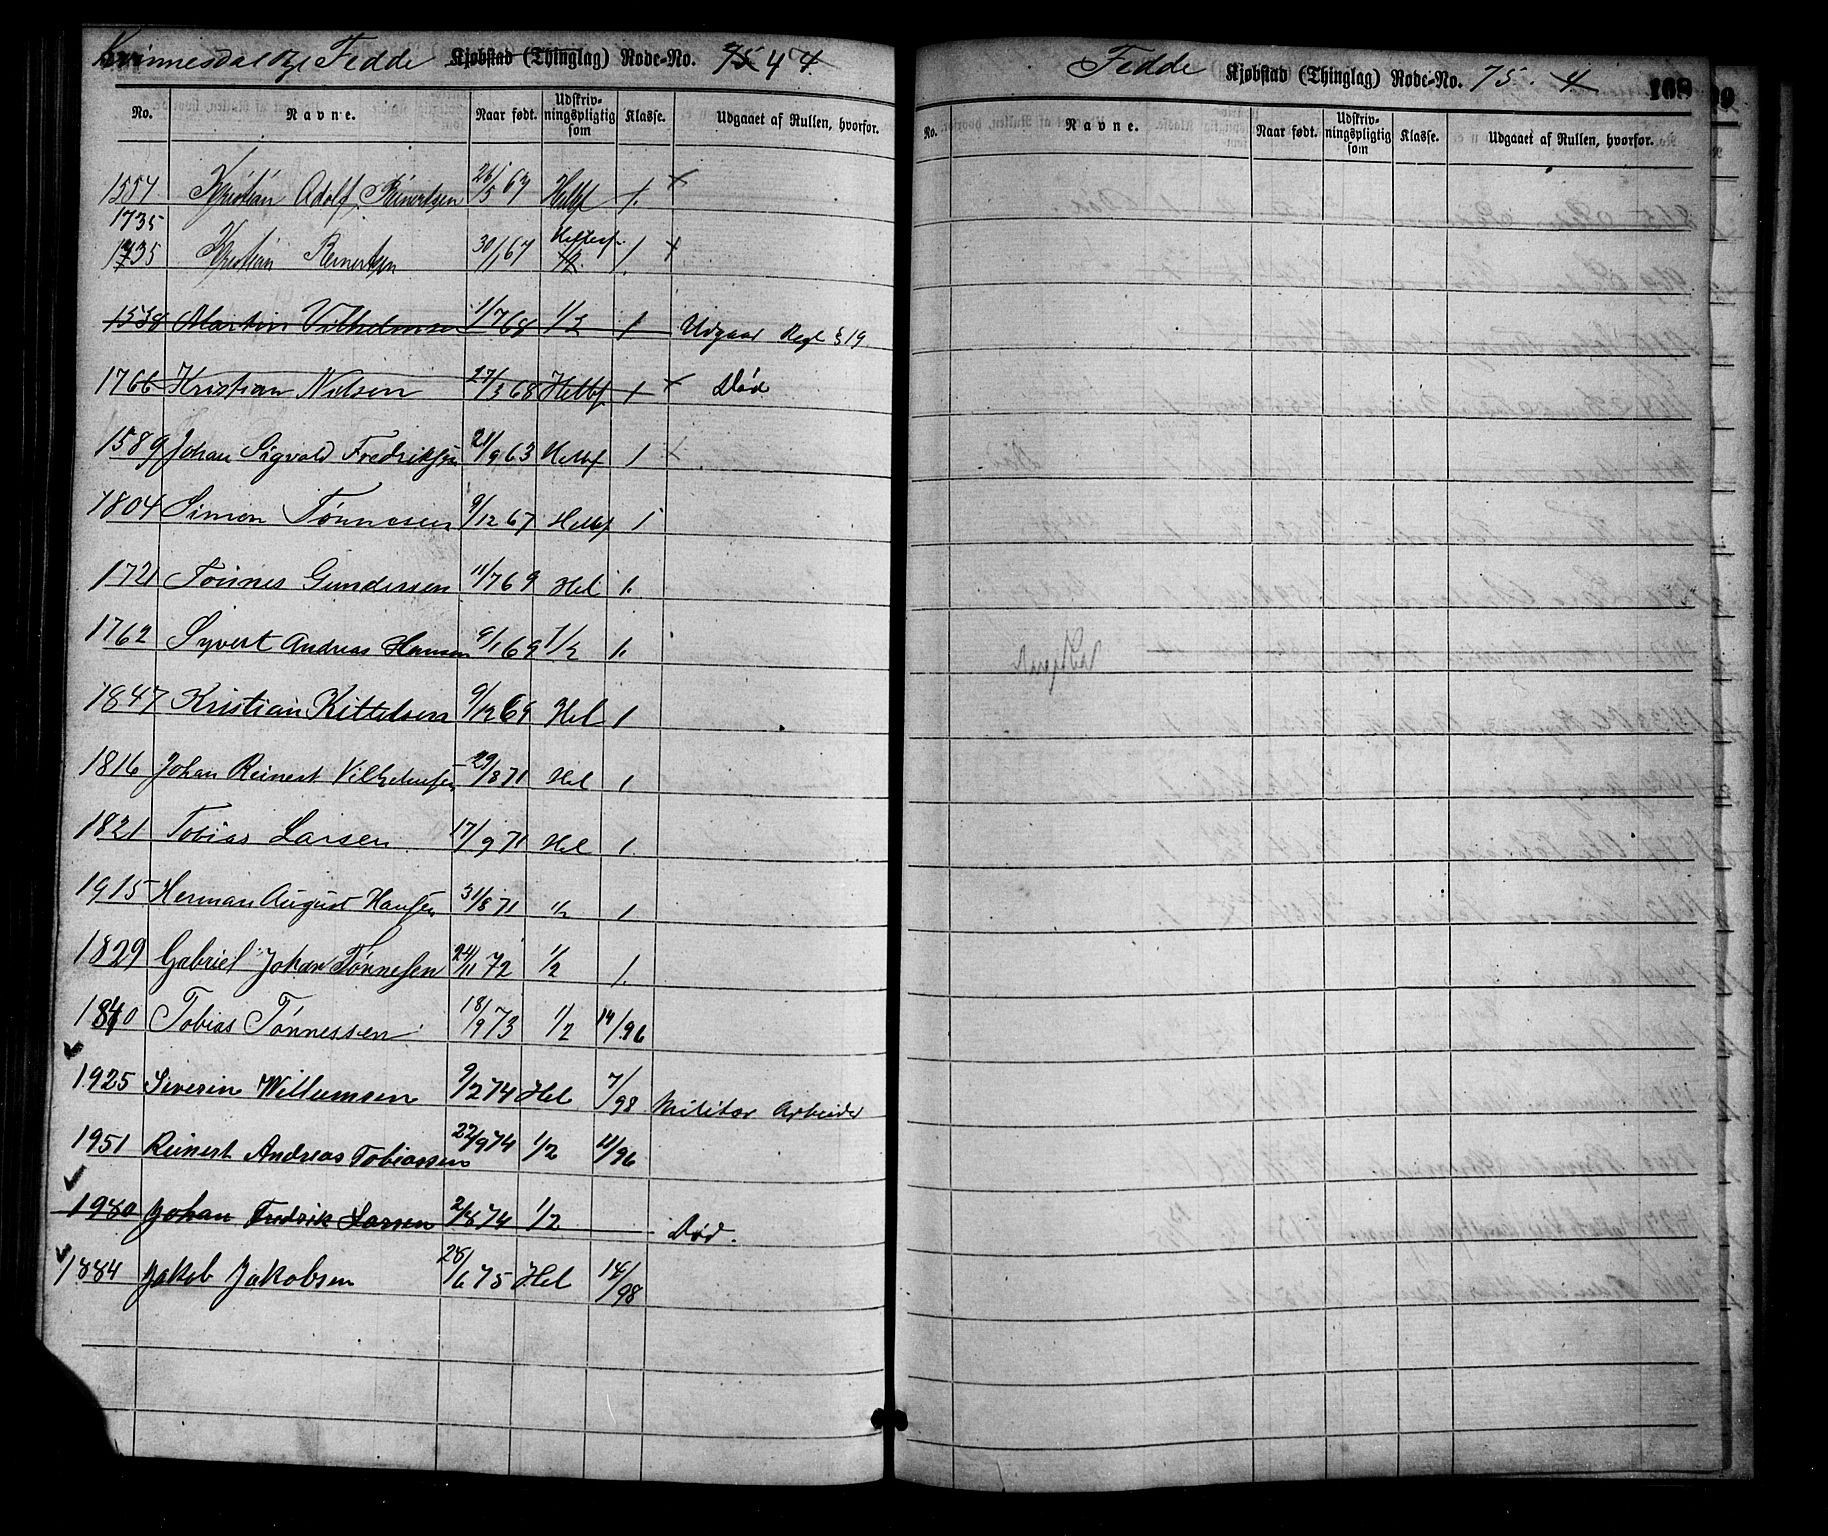 Kvinnesdal og Fedde Kjøbstad (Thinglag) Rode-No. 75 4 4.
No. Navne. Naar født. Udskrivningspligtig som Klasse. Udgaaet af Rullen, hvorfor.
1554 Kristian Adolf Reinertsen 26/5 67 Helbf 1. +
1735
1735 Kristian Reinertsen 30/1 67 1/2 1. +
1538 Martin Vilhelmsen 1/7 68 1/2 1 Udgaar Regl § 19.
1766 Kristian Nilsen 27/3 68 Helbf 1 + Død
1589 Johan Sigvald Fredriksen 21/9 63 Helbf 1
1804 Simon Tønnesen 9/12 67 Helbf 1
1721 Tønnes Gundersen 11/7 69 Hel 1.
1762 Syvert Andreas Hansen 9/1 69 1/2 1.
1847 Kristian Kittelsen 9/12 69 Hel 1
1816 Johan Reinert Vilhelmsen 29/8 71 Hel 1
1821 Tobias Larsen 17/9 71 Hel 1.
1915 Herman August Hansen 31/8 71 1/2 1
1829 Gabriel Johan Tønnesen 24/11 72 1/2 1.
1840 Tobias Tønnessen 18/9 73 1/2 14/96
1925 Severin Willumsen 9/2 74 Hel 7/98 Militær Arbeider
1951 Reinert Andreas Tobiassen 22/9 74 1/2 11/96
1980 Johan Fredrik Larsen 2/8 74 1/2 Død.
1884 Jakob Jakobsen 28/6 75 Hel 14/98
Fedde Kjøbstad (Thinglag) Rode-No. 75. 4. 109
No. Navne. Naar født. Udskrivningspligtig som Klasse. Udgaaet af Rullen, hvorfor.